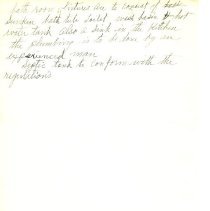 bath room fixtures are to consist of
sunken bath tub toilet, wash basin & hot
water tank also a sink in the kitchen
the plumbing is to be done by an
experienced man
Septic tank to conform with the
regulations